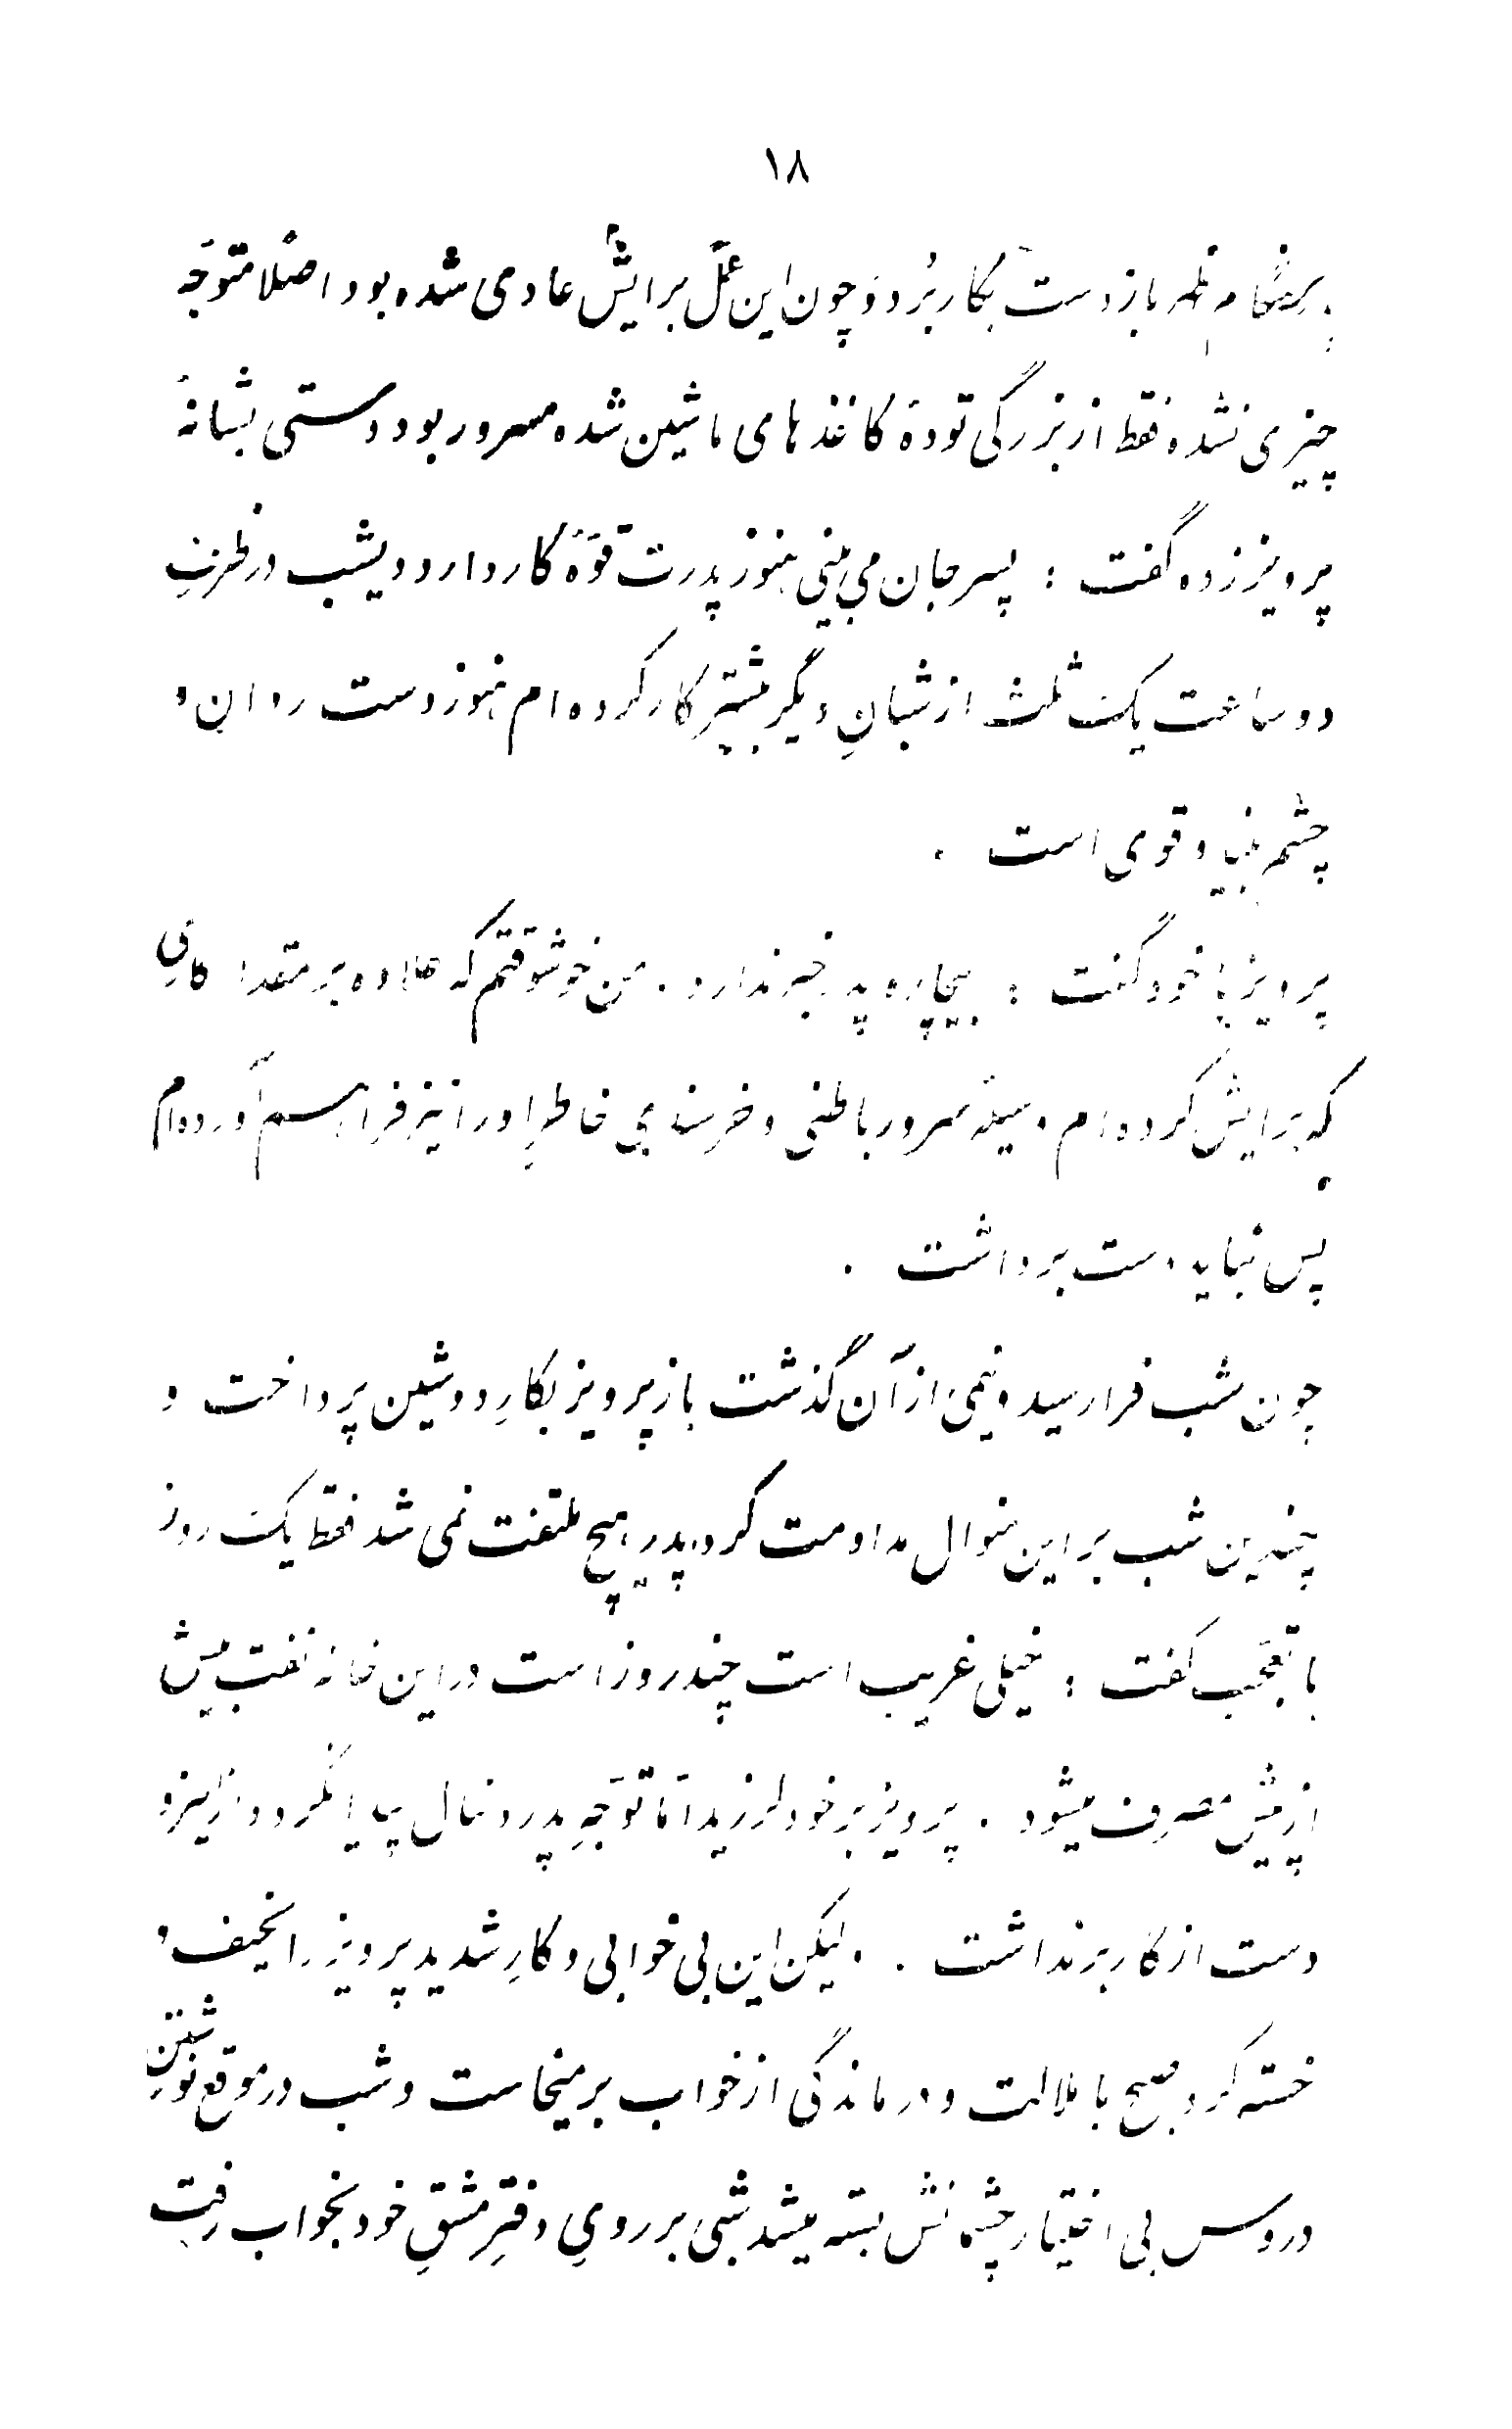 ۱۸
ظهر باز دست بکار بُرد و چون این عمل برایش عادی شده بود اصلًا متوجّه
چیزی نشده فقط از بزرگی تودهٔ کاغذهای ماشین شده مسرور بود دستی بشانهٔ
پرویز زده گفت : پسر جان می بینی هنوز پدرت قوّهٔ کار دارد دیشب در ظرفِ
دو ساعت یک ثلث از شبانِ دیگر بیشتر کار کرده ام هنوز دست روان و
چشم بینا و قوی است .
پرویز با خود گفت : بیچاره پدر خبر ندارد . من خوشوقتم که علاوه بر مقدار کاری
که برایش کرده ام وسیلهٔ سرور باطنی و خرسندی خاطرِ او را نیز فراهم آورده ام
پس نباید دست برداشت .
چون شب فرا رسید و نیمی از آن گذشت باز پرویز بکارِ دوشین پرداخت و
چندین شب بر این منوال مداومت کرد پدر هیچ ملتفت نمی شد فقط یک روز
با تعجّب گفت : خیلی غریب است چند روز است در این خانه نفت بیش
از پیش مصرف میشود . پرویز بر خود لرزید امّا توجّهِ پدر دنبال پیدا نکرد و از اینرو
دست از کار بر نداشت . لیکن این بی خوابی و کارِ شدید پرویز را نحیف و
خسته کرد صبح با ملالت و درماندگی از خواب بر میخاست و شب در موقع نوشتنِ
دروس بی اختیار چشمانش بسته میشد شبی بر رویِ دفترِ مشقِ خود بخواب رفت